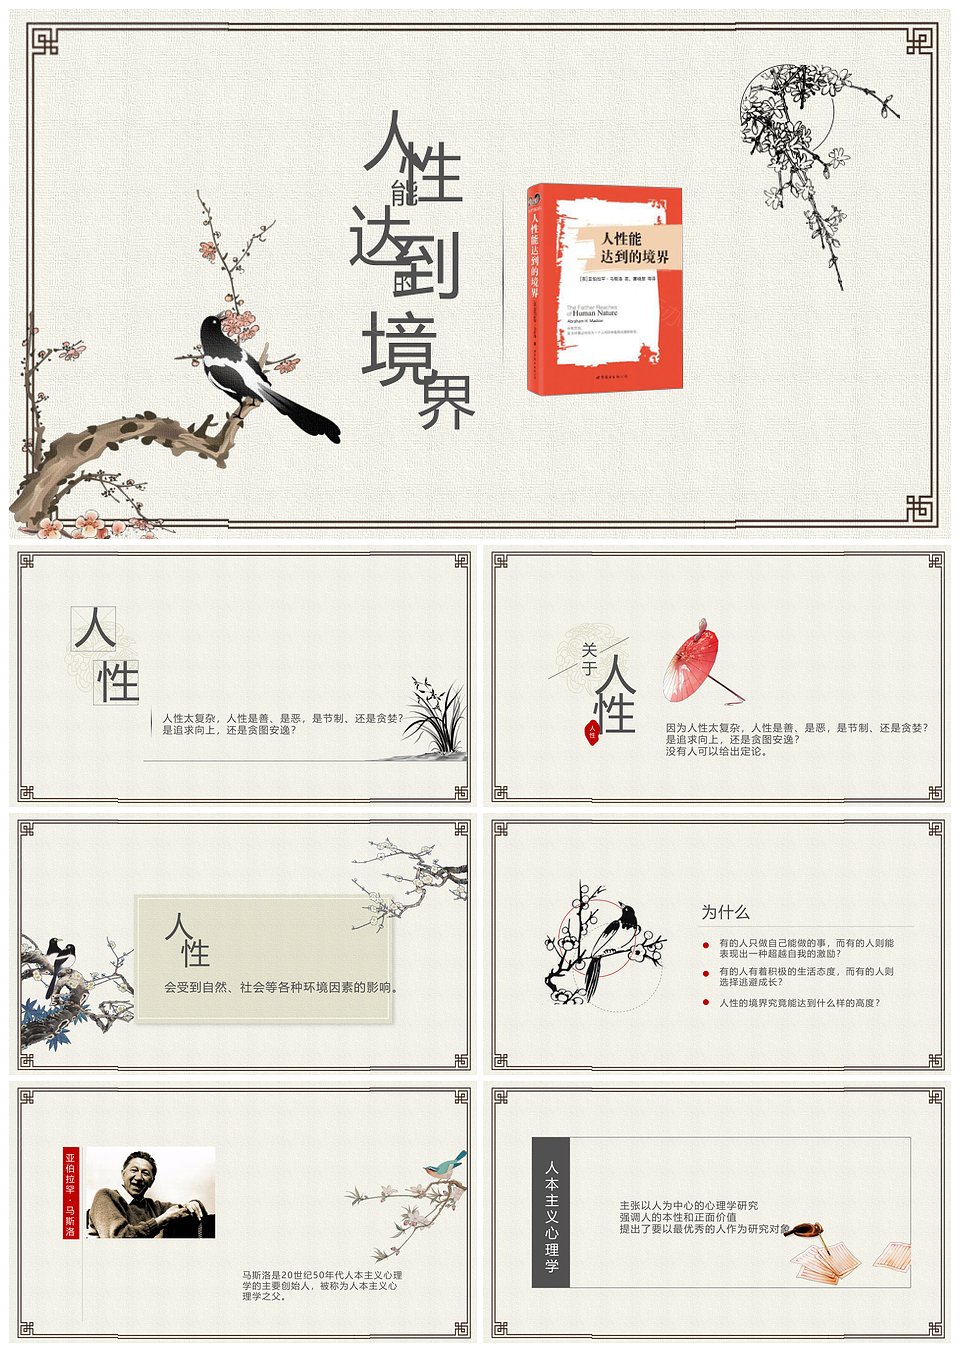 人性能达到的境界
人性能达到的境界
人性能
达到的境界
The Farther Reaches
of Human Nature
Abraham H. Maslow
人性
人性太复杂，人性是善、是恶，是节制、还是贪婪？
是追求向上，还是贪图安逸？
关于
人性
人性
因为人性太复杂，人性是善、是恶，是节制、还是贪婪？
是追求向上，还是贪图安逸？
没有人可以给出定论。
人性
会受到自然、社会等各种环境因素的影响。
为什么
有的人只做自己能做的事，而有的人则能
表现出一种超越自我的激励？
有的人有着积极的生活态度，而有的人则
选择逃避成长？
人性的境界究竟能达到什么样的高度？
亚伯拉罕·马斯洛
马斯洛是20世纪50年代人本主义心理
学的主要创始人，被称为人本主义心
理学之父。
人本主义心理学
主张以人为中心的心理学研究
强调人的本性和正面价值
提出了要以最优秀的人作为研究对象